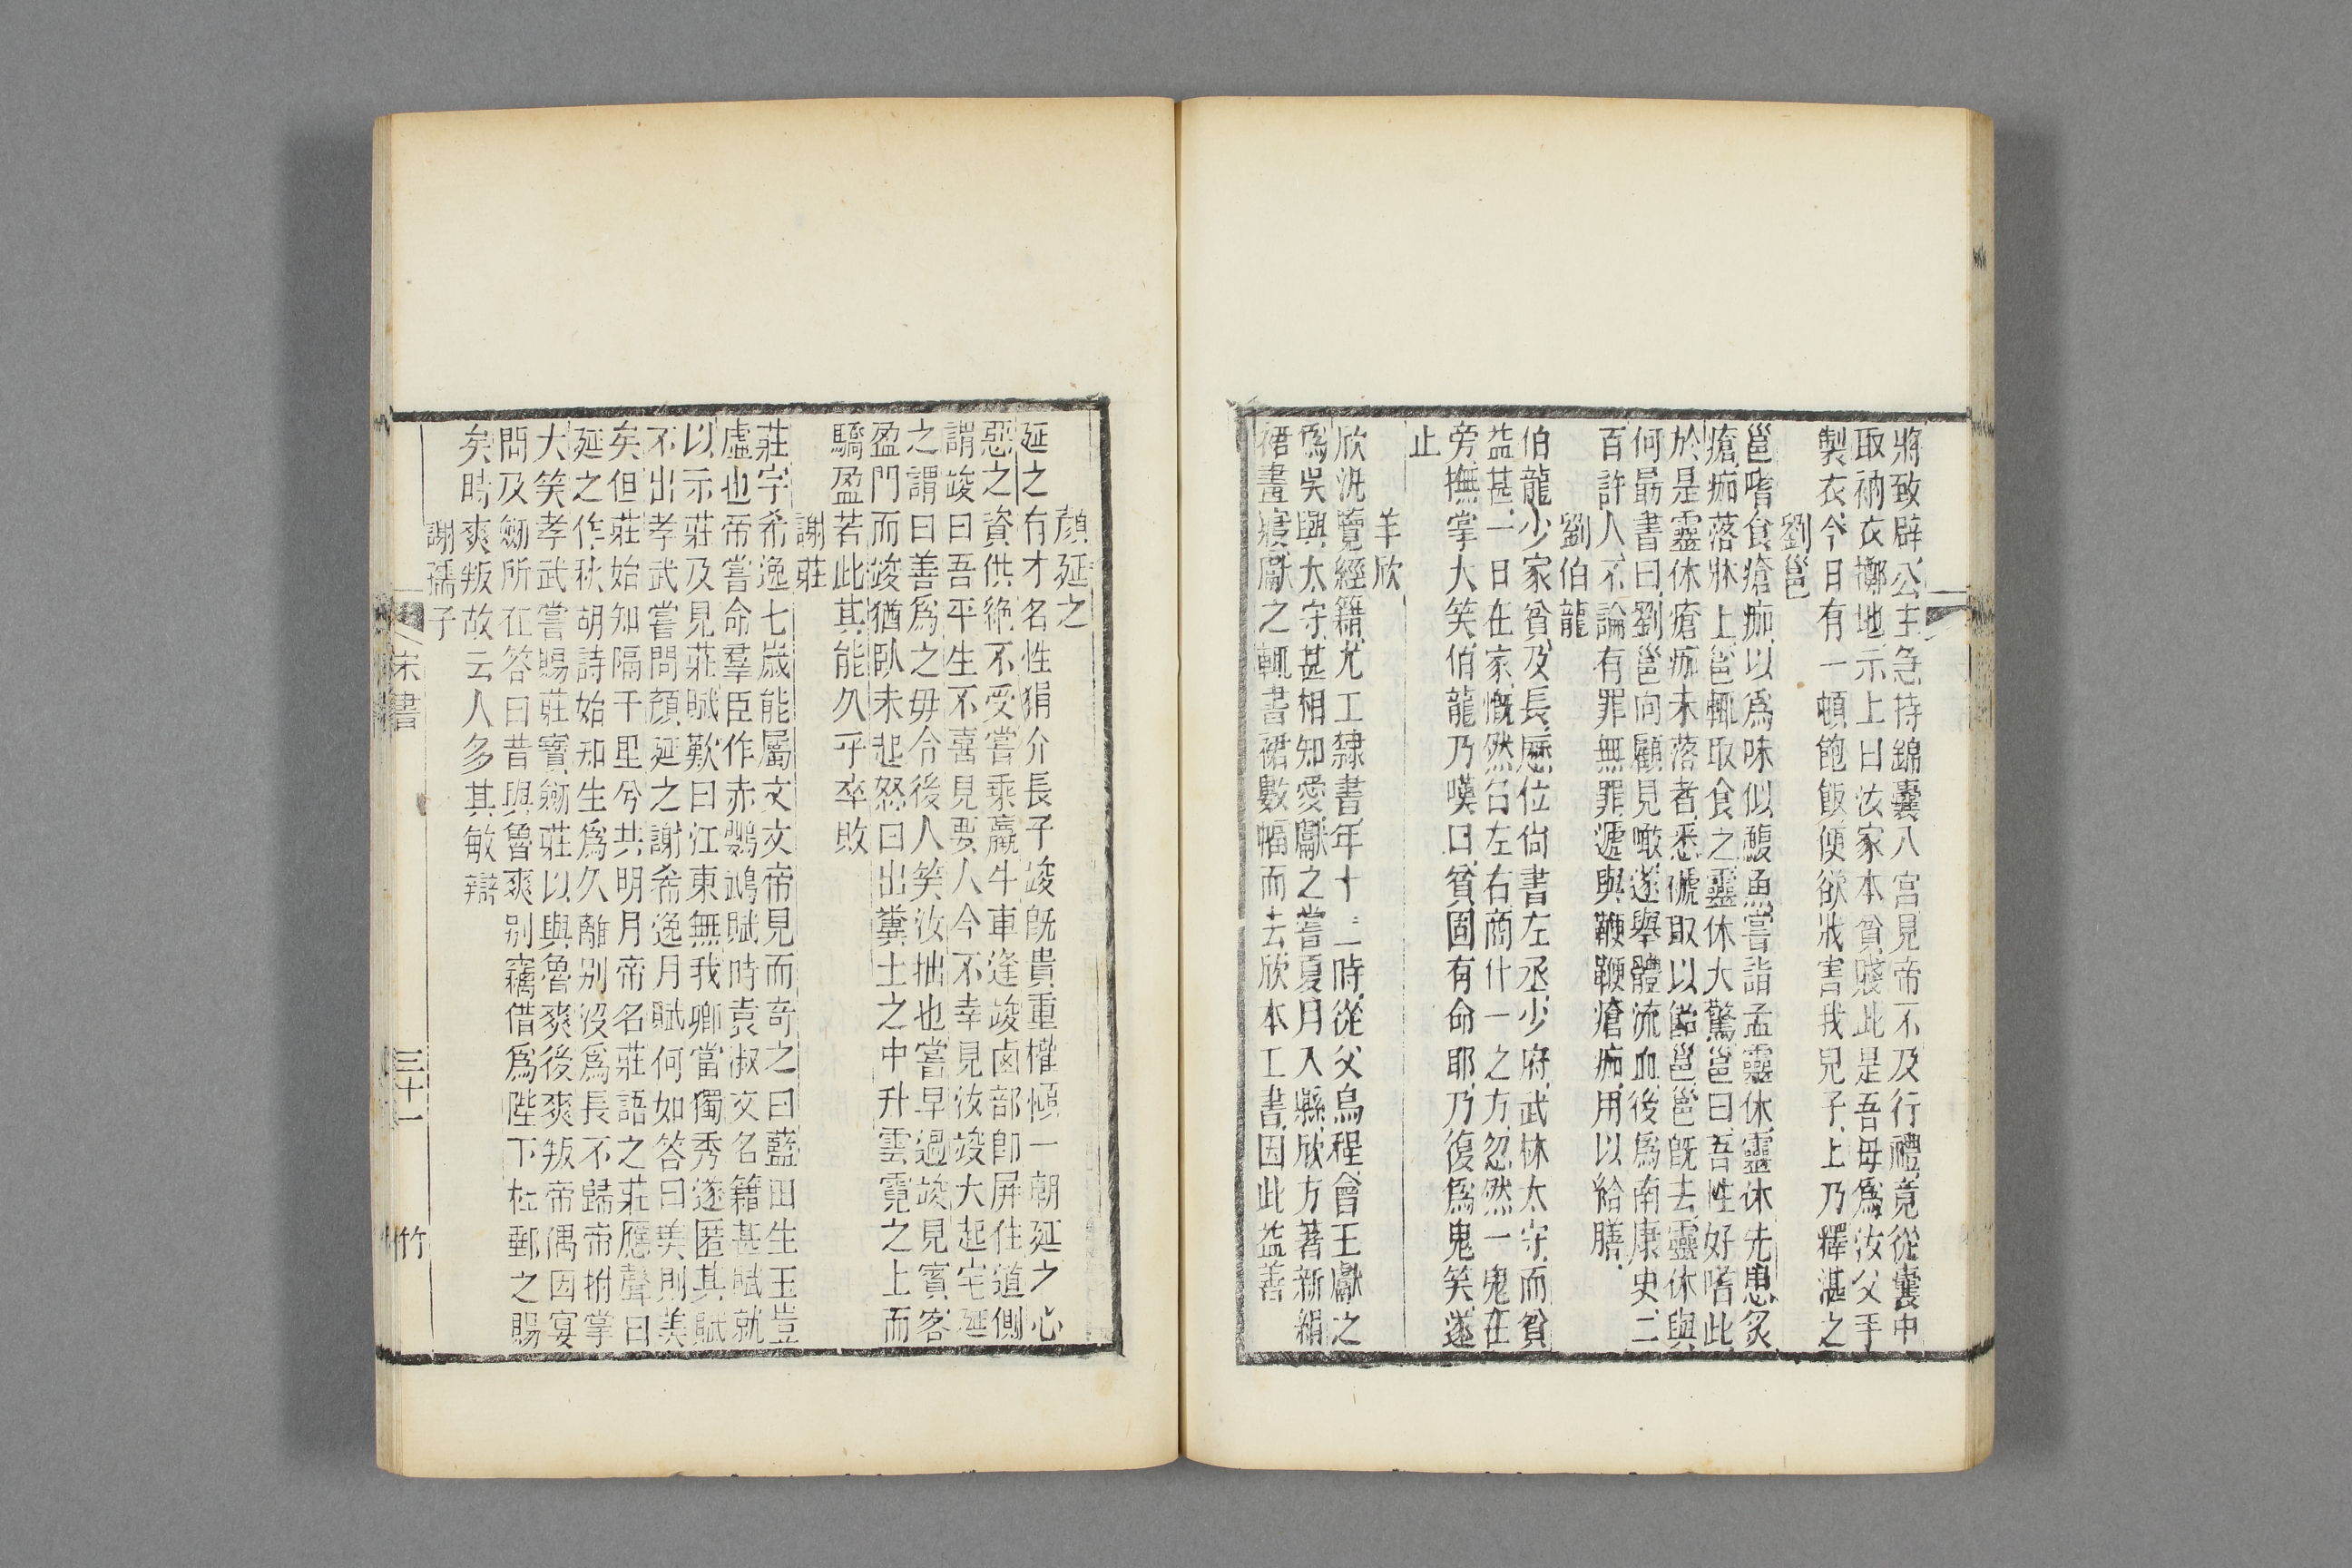 將致辟公主急持錦囊入宮見帝不及行禮竟從囊中
取衲衣擲地示上曰汝家本貧賤此是吾毋爲汝父手
製衣今日有一頓飽飯便欲戕害我兒子上乃釋湛之
劉邕
邕嗜食瘡痂以爲味似鰒魚嘗詣孟靈休靈休先患炙
瘡痂落牀上邕輒取食之靈休大驚邕曰吾性好嗜此
於是靈休瘡痂未落者悉褫取以飴邕邕旣去靈休與
何勗書曰劉邕向顧見噉遂舉體流血後爲南康史二
百許人不論有罪無罪遞與鞭鞭瘡痂用以給膳
劉伯龍
伯龍少家貧及長歷位尙書左丞少府武林太守而貧
益甚一日在家慨然召左右商什一之方忽然一鬼在
旁撫掌大笑伯龍乃嘆曰貧固有命耶乃復爲鬼笑遂
止
羊欣
欣汎覽經籍尤工隸書年十二時從父烏程會王獻之
爲吳興太守甚相知愛獻之嘗夏月入縣欣方著新絹
裙晝寢獻之輒書裙數幅而去欣本工書因此益善
顏延之
延之有才名性狷介長子竣旣貴重權傾一朝延之心
惡之資供絶不受嘗乘羸牛車逢竣鹵部卽屏住道側
謂竣曰吾平生不喜見要人今不幸見汝竣大起宅延
之謂曰善爲之毋令後人笑汝拙也嘗早過竣見賓客
盈門而竣猶臥未起怒曰出糞土之中升雲霓之上而
驕盈若此其能久乎卒敗
謝莊
莊字希逸七歲能屬文文帝見而奇之曰藍田生玉豈
虛也帝嘗命羣臣作赤鸚鵡賦時袁淑文名籍甚賦就
以示莊及見莊賦歎曰江東無我卿當獨秀遂匿其賦
不出孝武嘗問顏延之謝希逸月賦何如答曰美則美
矣但莊始知隔千里兮共明月帝名莊語之莊應聲曰
延之作秋胡詩始知生爲久離别沒爲長不歸帝拊掌
大笑孝武嘗賜莊寶劒莊以與魯爽後爽叛帝偶因宴
問及劒所在答曰昔與魯爽别竊借爲陛下杜郵之賜
矣時爽叛故云人多其敏辯
謝孺子
宋書
三十一
竹